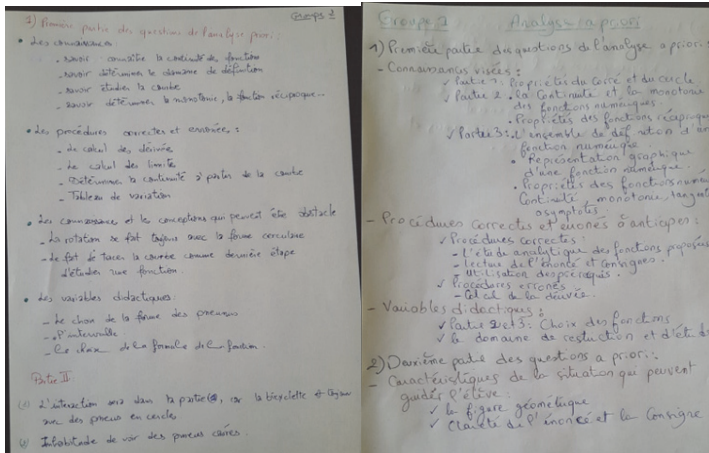 Groupe 2
1) Première partie des questions de l'analyse priori :
• Les connaissances :
- savoir : connaître la continuité de fonction
- savoir déterminer le domaine de définition
- savoir étudier la courbe
- savoir déterminer la monotonie, la fonction réciproque...
• Les procédures correctes et erronées :
- Le calcul des dérivée
- Le calcul des limite
- Déterminer la continuité à partir de la courbe
- Tableau de variation
• Les connaissance et les conceptions qui peuvent être obstacle
- La rotation se fait toujours avec la forme circulaire
- Le fait de tracer la courbe comme dernière étape
d'étudier une fonction.
• Les variables didactiques :
- Le choix de la forme des pneus
- l'intervalle.
- Le choix de la formule de la fonction.
Partie II
(1) L'interaction sera dans la partie car la bicyclette est toujours
avec des pneus en cercles
(2) Inhabitude de voir des pneus carrés.
Groupe Analyse a priori
1) Première partie des questions de l'analyse a priori :
- Connaissances visées :
✓ Partie 1 : Propriétés du carré et du cercle
✓ Partie 2 • la continuité et la monotonie
des fonctions numériques.
• Propriétés des fonctions réciproque
✓ Partie 3 : • l'ensemble de définition d'une
fonction numérique.
• Représentation graphique
d'une fonction numérique.
• Propriétés des fonctions numé
Continuité, monotonie, tangente
asymptotes.
- Procédures correctes et erronés à anticiper :
✓ Procédures correctes :
- L'étude analytique des fonctions proposées
- lecture de l'énoncé et consignes.
- utilisation des prérequis.
✓ Procédures erronés
- Calcul de la dérivée.
- Variables didactiques :
✓ Partie 2 et 3 : Choix des fonctions
✓ le domaine de restriction et d'étude
2) Deuxième partie des questions a priori :
- Caractéristiques de la situation qui peuvent
guider l'élève :
✓ la figure géométrique
✓ Clareté de l'énoncé et la Consigne